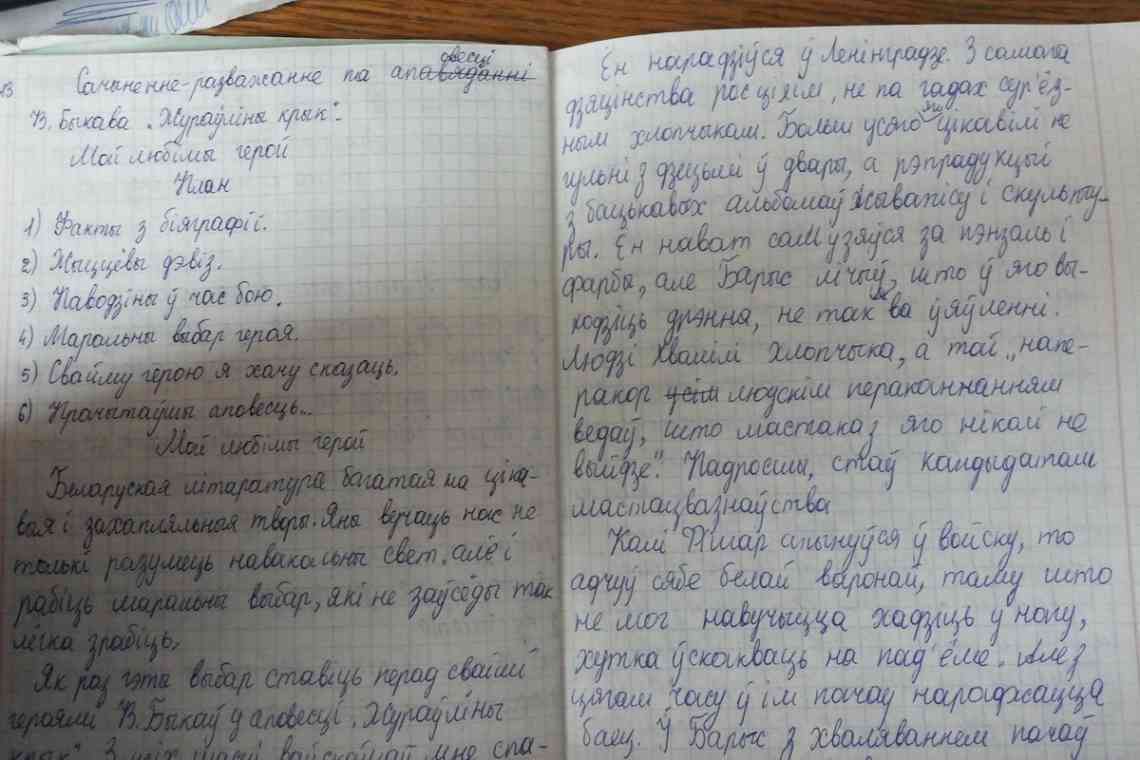 13
Сачыненне-разважанне па апавяданні
двесці
В. Быкава „Жураўліны крык“.
Мой любімы герой
План
1) Факты з біяграфіі.
2) Жыццёвы дэвіз.
3) Паводзіны ў час бою.
4) Маральны выбар героя.
5) Свайму герою я хачу сказаць.
6) Прачытаўшы аповесць...
Мой любімы герой
Беларуская літаратура багатая на ціка-
выя і захапляльныя творы. Яны вучаць нас не
толькі разумець навакольны свет, але і
рабіць маральны выбар, які не заўсёды так
лёгка зрабіць.
Як раз гэты выбар ставіць перад сваімі
героямі В. Быкаў у аповесці „Жураўліны
крык“. З усіх шасці вайскоўцаў мне спа-
Ён нарадзіўся ў Ленінградзе. З самага
дзяцінства рос ціхім, не па гадах сур'ёз-
ным хлопчыкам. Больш усяго яго цікавілі не
гульні з дзецьмі ў двары, а рэпрадукцыі
з бацькавых альбомаў жывапісу і скульпту-
ры. Ён нават сам узяўся за пэнзаль і
фарбы, але Барыс лічыў, што ў яго вы-
ходзіць дрэнна, не так як ва ўяўленні.
Людзі хвалілі хлопчыка, а той „напе-
ракор усім людскім перакананням
ведаў, што мастака з яго ніколі не
выйдзе“. Падросшы, стаў кандыдатам
мастацвазнаўства
Калі Фішар апынуўся ў войску, то
адчуў сябе белай варонай, таму што
не мог навучыцца хадзіць у ногу,
хутка ўскокваць на пад'ёме. Але з
цягам часу ў ім пачаў нараджацца
баец. І Барыс з хваляваннем пачаў